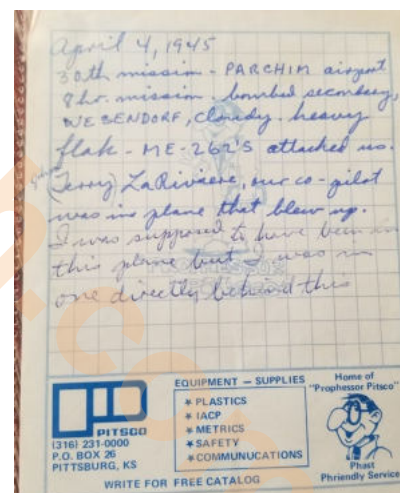 April 4, 1945
30th mission - PARCHIM airport
8 hr. mission. bombed secondary,
WESENDORF, cloudy. heavy
flak - ME-262'S attacked us.
(Jerry) LaRiviere, our co-pilot
was in plane that blew up.
I was supposed to have been in
this plane but I was in
one directly behind this
PITSCO
(316) 231-0000
P.O. BOX 26
PITTSBURG, KS
EQUIPMENT — SUPPLIES
* PLASTICS
* IACP
* METRICS
* SAFETY
* COMMUNUCATIONS
Home of
"Prophessor Pitsco"
Phast
Phriendly Service
WRITE FOR FREE CATALOG